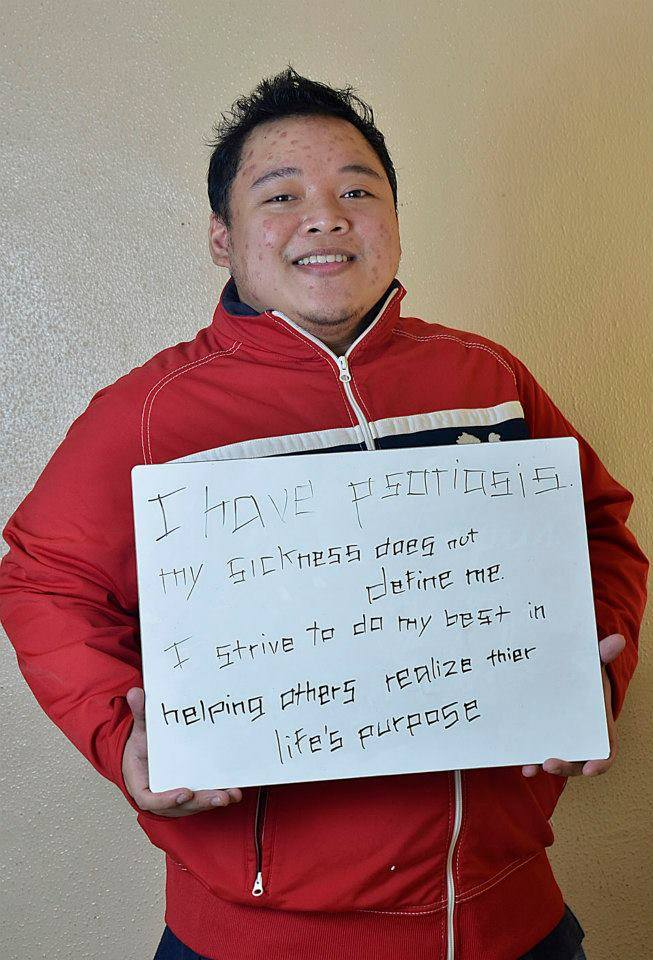 I have psoriasis.
my sickness does not
define me.
I strive to do my best in
helping others realize thier
life's purpose